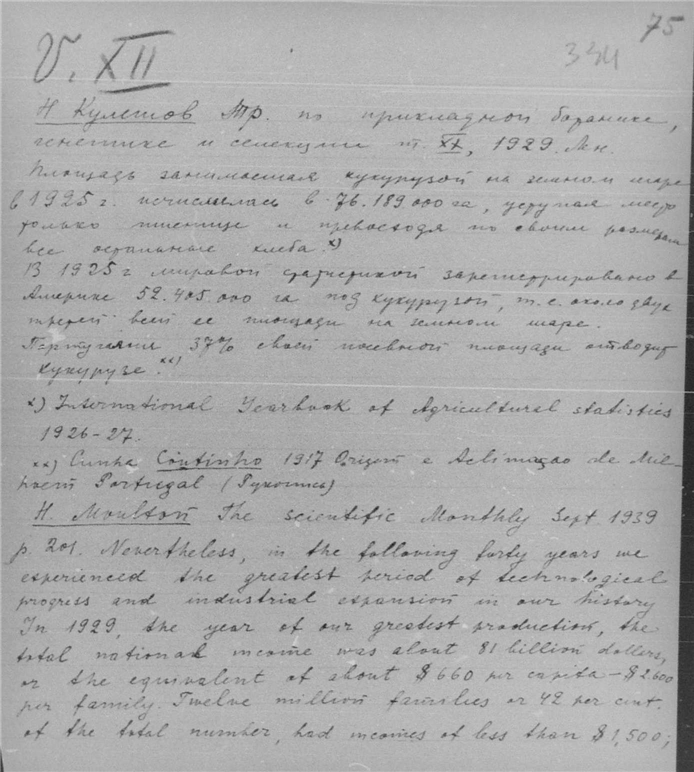 75
334
V. XII
Н. Кулешов Тр. по прикладной ботанике,
генетике и селекции т. XX, 1929. Лн.
Площадь занимаемая кукурузой на земном шаре
в 1925 г. исчислялась в 76.189.000 га, уступая место
только пшенице и превосходя по своим размерам
все остальные хлеба. x)
В 1925 г мировой статистикой зарегистрировано в
Америке 52.405.000 га под кукурузой, т.е. около двух
третей всей ее площади на земном шаре.
Португалия 37% своей посевной площади отводит
кукурузе. xx)
x) International Yearbook of Agricultural statistics
1926-27.
xx) Cunha Coutinho 1917 Origem e Aclimaçao de Mil-
ho em Portugal (Рукопись)
H. Moulton The scientific Monthly Sept 1939
p. 201. Nevertheless, in the following forty years we
experienced the greatest period of technological
progress and industrial expansion in our history
In 1929, the year of our greatest production, the
total national income was about 81 billion dollars,
or the equivalent of about $660 per capita - $2600
per family. Twelve million families or 42 per cent.
of the total number, had incomes of less than $1,500;